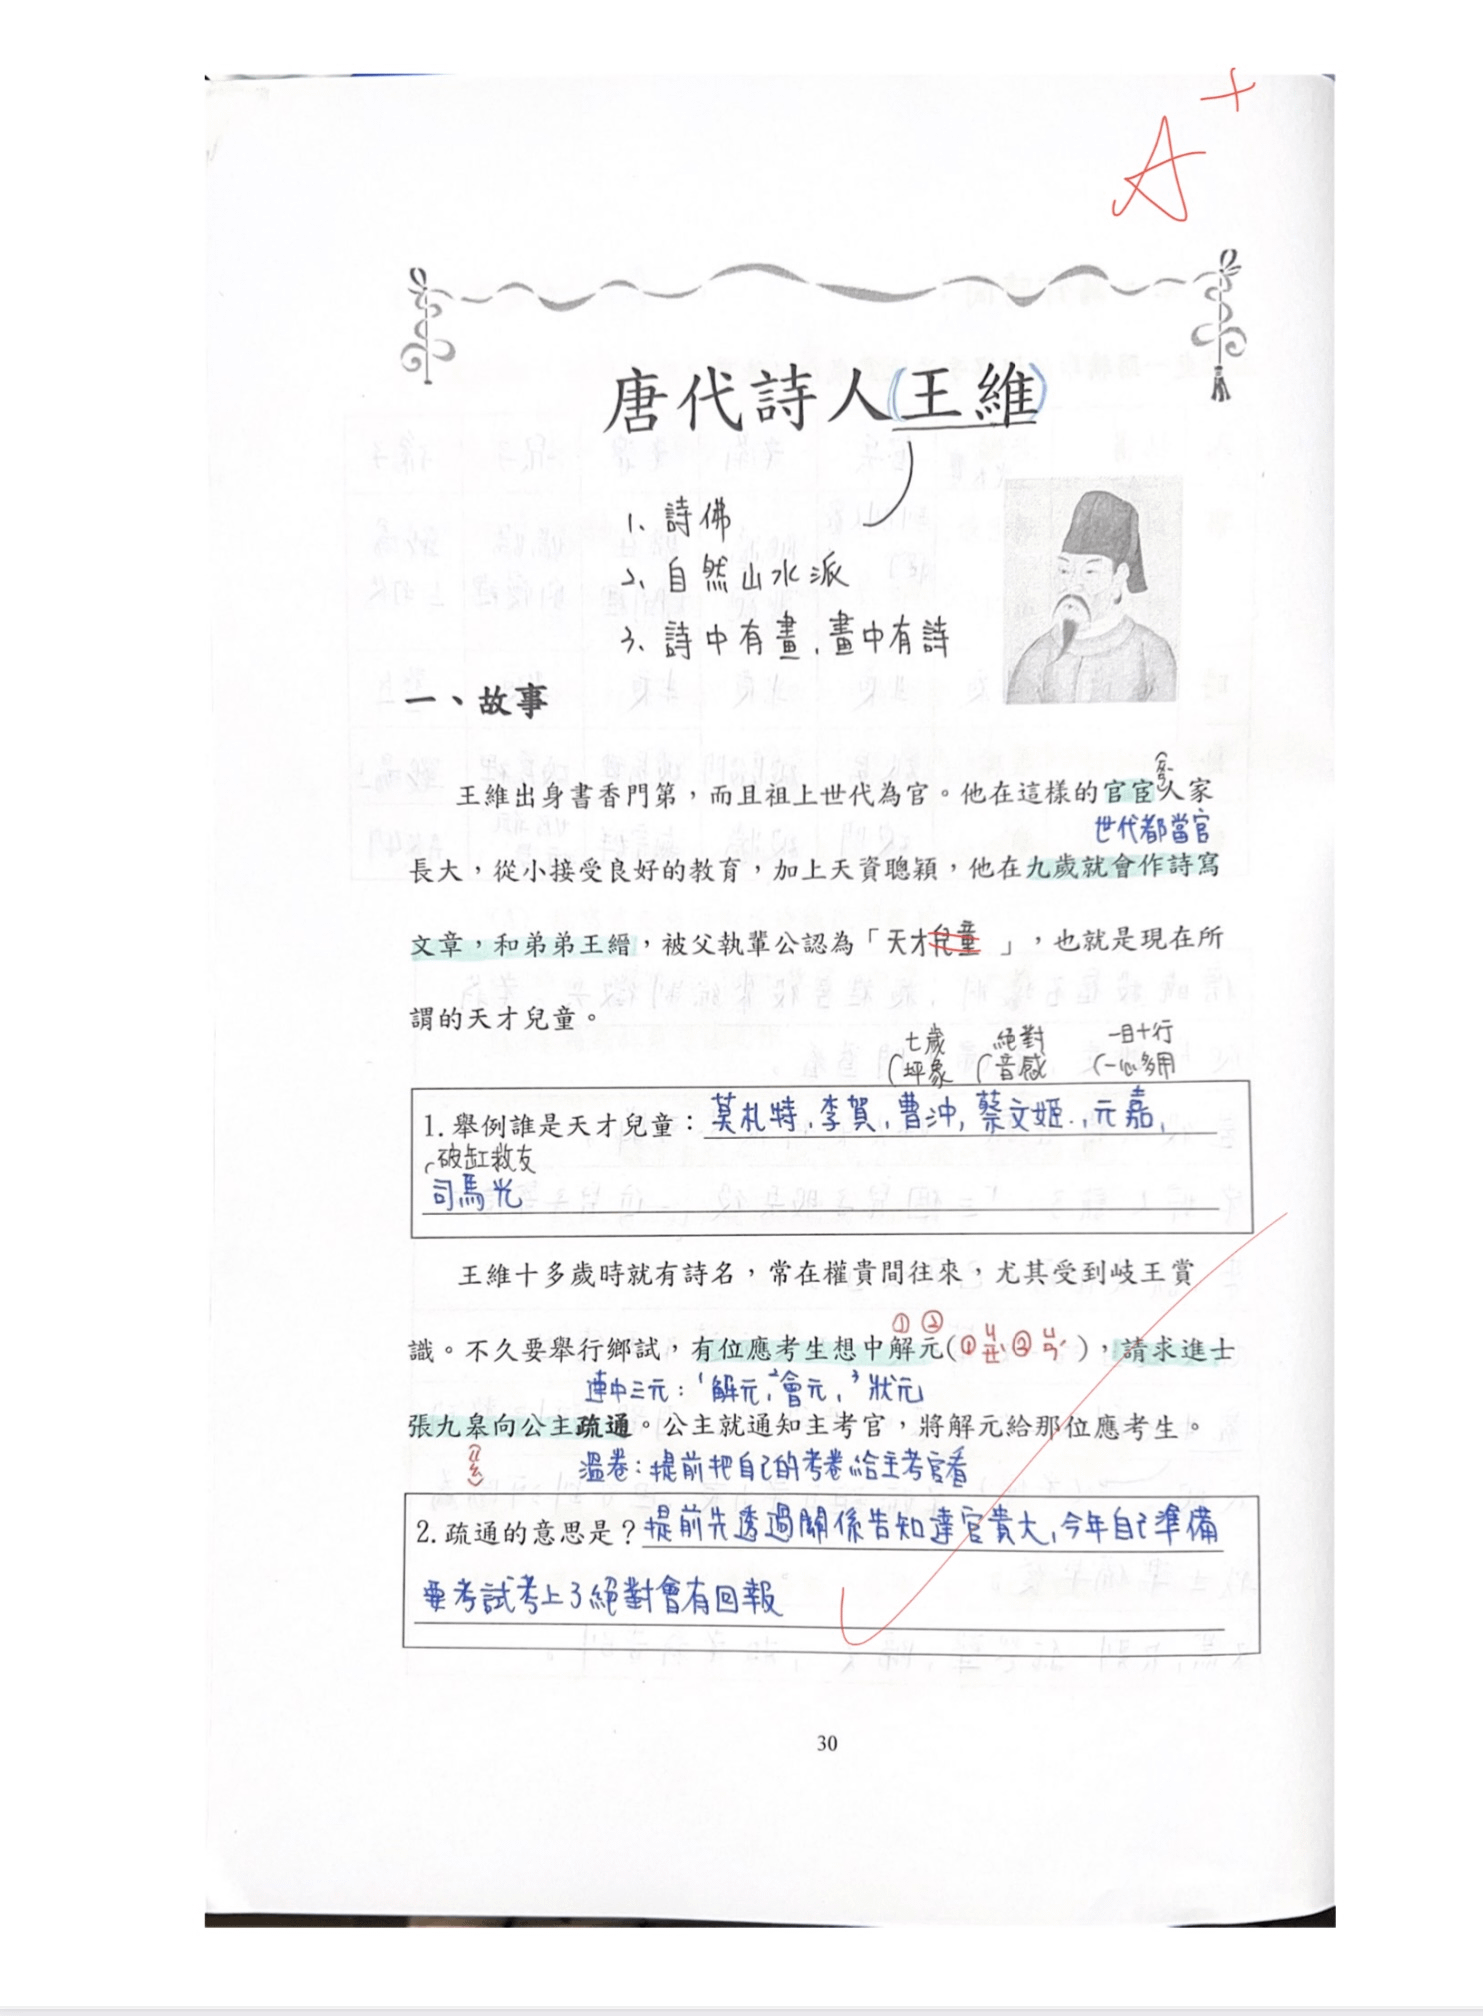 A+
唐代詩人(王維)
1. 詩佛
2. 自然山水派
3. 詩中有畫，畫中有詩
一、故事
王維出身書香門第，而且祖上世代為官。他在這樣的官宦人家
世代都當官
長大，從小接受良好的教育，加上天資聰穎，他在九歲就會作詩寫
文章，和弟弟王縉，被父執輩公認為「天才兒童」，也就是現在所
謂的天才兒童。
七歲 絕對 一目十行
音感 一心多用
1.舉例誰是天才兒童：莫札特，李賀，曹沖，蔡文姬，元嘉，
破缸救友
司馬光
王維十多歲時就有詩名，常在權貴間往來，尤其受到岐王賞
① ②
識。不久要舉行鄉試，有位應考生想中解元(①ㄐㄧㄝˋ②ㄩㄢˊ)，請求進士
連中三元：1解元，2會元，3狀元
張九皋向公主疏通。公主就通知主考官，將解元給那位應考生。
ㄍㄠ
溫卷：提前把自己的考卷給主考官看
2.疏通的意思是？提前先透過關係告知達官貴大，今年自己準備
要考試考上了絕對會有回報
30